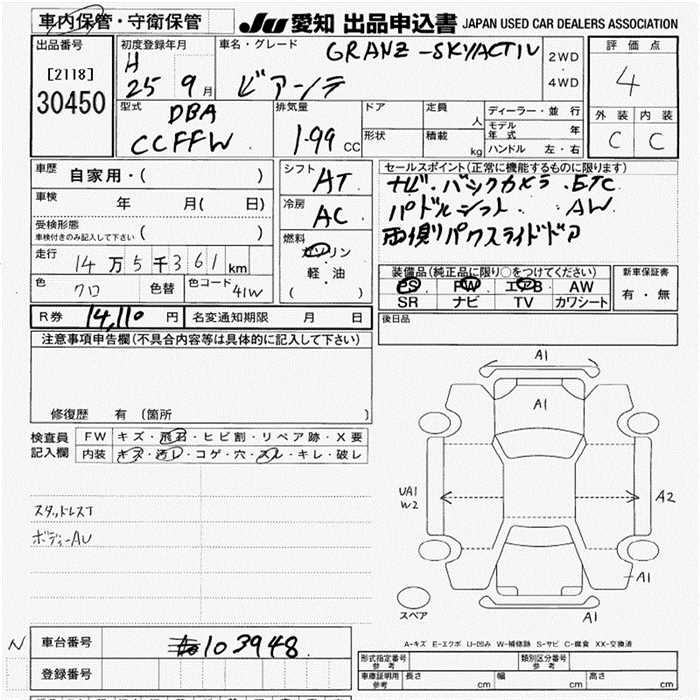 車内保管・守衛保管
JU 愛知 出品申込書 JAPAN USED CAR DEALERS ASSOCIATION
出品番号
[2118]
30450
初度登録年月
H
25 9月
車名・グレード
GRANZ-SKYACTIV
ビアンテ
2WD
・
4WD
評価点
4
外装 内装
C C
型式
DBA
CCFFW
排気量
1.99 CC
ドア
定員 人
形状
積載 kg
ディーラー・並行
モデル年式 年
ハンドル 左・右
車歴
自家用・( )
車検 年 月( 日)
受検形態
車検付きのみ記入して下さい ( )
走行
14万5千361km
色
クロ
色替
色コード
41W
シフト
AT
冷房
AC
燃料
ガソリン
・
軽・油
( )
セールスポイント(正常に機能するものに限ります)
ナビ・バックカメラ・ETC
パドルシフト・AW
両側パワスライドドア
装備品(純正品に限り○をつけてください)
PS PW エアB AW
SR ナビ TV カワシート
新車保証書
有・無
R券 14,110 円
名変通知期限 月 日
後日品
注意事項申告欄(不具合内容等は具体的に記入して下さい)
修復歴 有 (箇所 )
検査員
記入欄
FW キズ・飛石・ヒビ割・リペア跡・X要
内装 キズ・汚レ・コゲ・穴・スレ・キレ・破レ
スタッドレス
ボディーAU
A1
A1
UA1
W2
A2
A1
A1
スペア
A-キズ E-エクボ U-凹み W-補修跡 S-サビ C-腐食 XX-交換済
N
車台番号
103948
登録番号
形式指定番号
参考
類別区分番号
参考
車庫証明用
参考
長さ cm
幅 cm
高さ cm